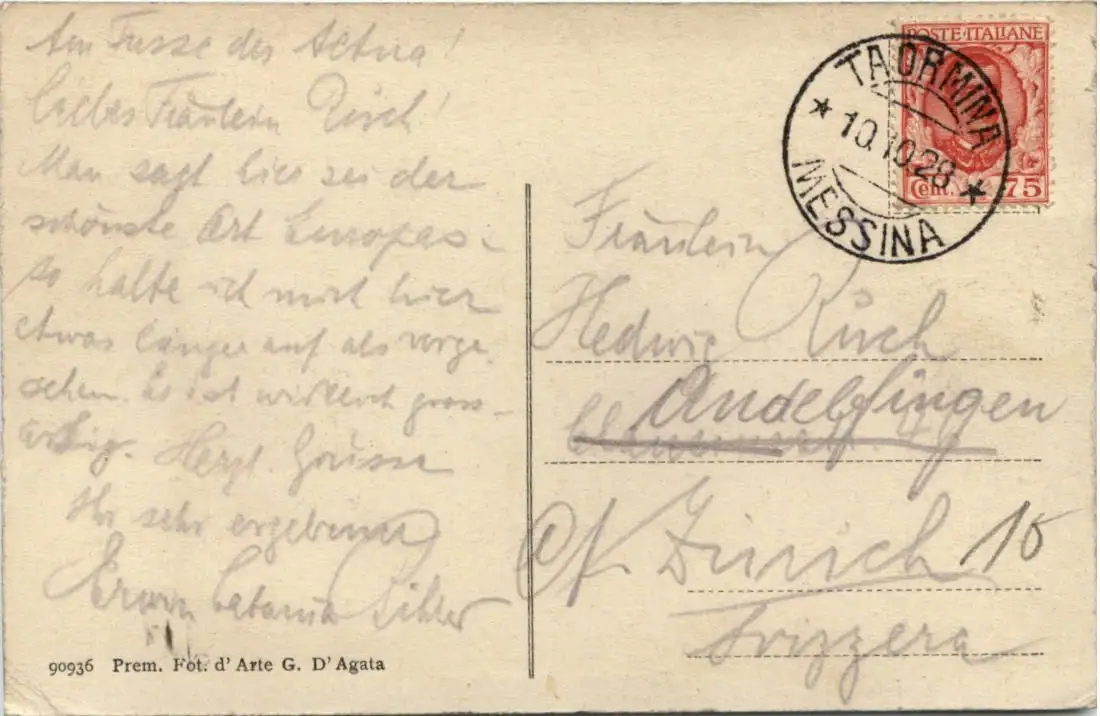 Am Fusse des Aetna!
Liebes Fräulein Rüsch!
Man sagt hier sei der
schönste Ort Europas -
so halte ich mich hier
etwas länger auf als vorge-
sehen. Es ist wirklich gross-
artig. Herzl. Grüsse
Ihr sehr ergebener
Erwin
90936 Prem. Fot. d'Arte G. D'Agata
POSTE ITALIANE
Cent. 75
TAORMINA
10.10.28
MESSINA
Fräulein
Hedwig Rüsch
Andelfingen
Zürich 10
Svizzera